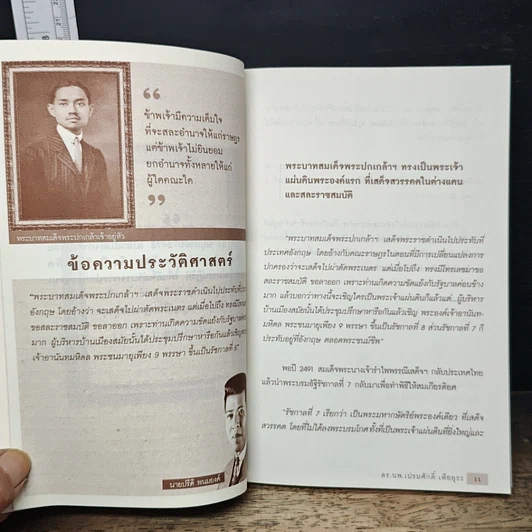 “
ข้าพเจ้ามีความเต็มใจ
ที่จะสละอำนาจให้แก่ราษฎร
แต่ข้าพเจ้าไม่ยินยอม
ยกอำนาจทั้งหลายให้แก่
ผู้ใดคณะใด
”
พระบาทสมเด็จพระปกเกล้าเจ้าอยู่หัว
ข้อความประวัติศาสตร์
"พระบาทสมเด็จพระปกเกล้าฯ เสด็จพระราชดำเนินไปประทับที่ประเทศ
อังกฤษ โดยอ้างว่า จะเสด็จไปผ่าตัดพระเนตร แต่เมื่อไปถึง ทรงมีโทรเลขมา
ขอสละราชสมบัติ ขอลาออก เพราะท่านเกิดความขัดแย้งกับรัฐบาลคณะราษฎร
แล้ว ผู้บริหารบ้านเมืองสมัยนั้นได้ประชุมปรึกษาหารือกันแล้วเชิญพระองค์
เจ้าอานันทมหิดล พระชนมายุเพียง 9 พรรษา ขึ้นเป็นรัชกาลที่ 8"
นายปรีดี พนมยงค์
พระบาทสมเด็จพระปกเกล้าฯ ทรงเป็นพระเจ้า
แผ่นดินพระองค์แรก ที่เสด็จสวรรคตในต่างแดน
และสละราชสมบัติ
"พระบาทสมเด็จพระปกเกล้าฯ เสด็จพระราชดำเนินไปประทับที่
ประเทศอังกฤษ โดยอ้างกับคณะราษฎรในตอนที่มีการเปลี่ยนแปลงการ
ปกครองว่าจะเสด็จไปผ่าตัดพระเนตร แต่เมื่อไปถึง ทรงมีโทรเลขมาขอ
สละราชสมบัติ ขอลาออก เพราะท่านเกิดความขัดแย้งกับรัฐบาลค่อนข้าง
มาก แล้วบอกว่าทางนี้จะเชิญใครเป็นพระเจ้าแผ่นดินก็แล้วแต่..ผู้บริหาร
บ้านเมืองนั้นได้ประชุมปรึกษาหารือกันแล้วเชิญ พระองค์เจ้าอานันท-
มหิดล พระชนมายุเพียง 9 พรรษา ขึ้นเป็นรัชกาลที่ 8 ส่วนรัชกาลที่ 7 ก็
ประทับอยู่ที่อังกฤษ ตลอดพระชนม์ชีพ"
พอปี 2491 สมเด็จพระนางเจ้ารำไพพรรณีเสด็จฯ กลับประเทศไทย
แล้วนำพระบรมอัฐิรัชกาลที่ 7 กลับมาเพื่อทำพิธีให้สมเกียรติยศ
"รัชกาลที่ 7 เรียกว่า เป็นพระมหากษัตริย์พระองค์เดียว ที่เสด็จ
สวรรคต โดยที่ไม่ได้ลงพระบรมโกศ ทั้งที่เป็นพระเจ้าแผ่นดินที่ยิ่งใหญ่และ
ดร.นพ.เปรมศักดิ์ เพียยุระ 11